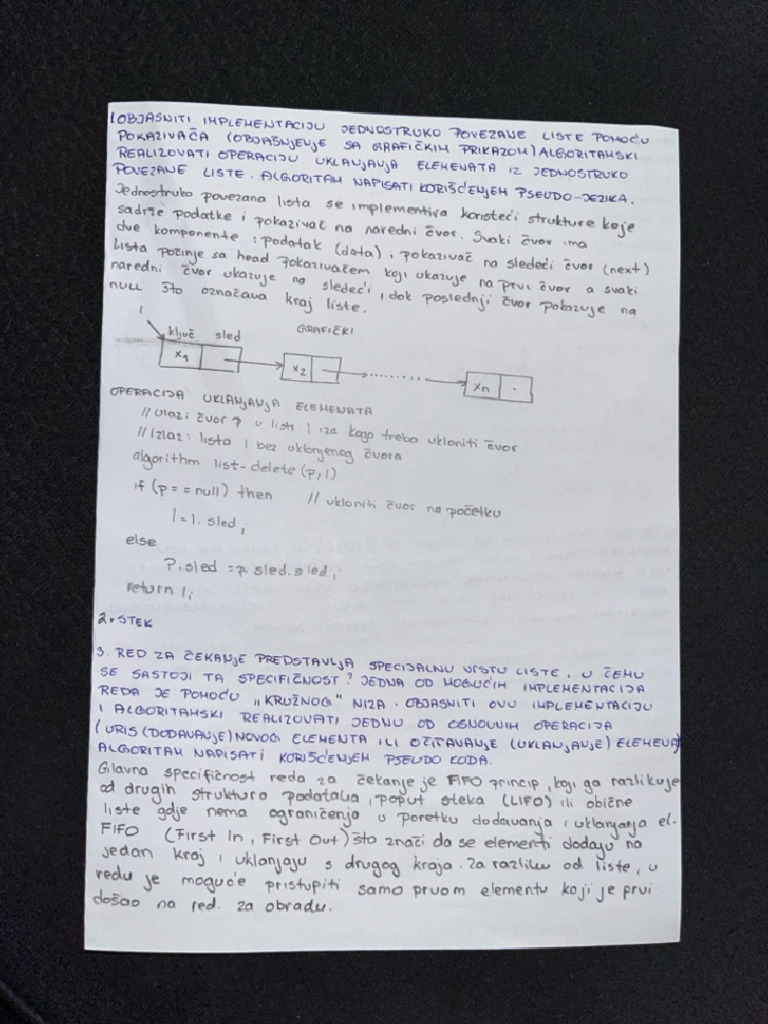 1 OBJASNITI IMPLEMENTACIJU JEDNOSTRUKO POVEZANE LISTE POMOĆU
POKAZIVAČA (OBJAŠNJENJE SA GRAFIČKIM PRIKAZOM) ALGORITAMSKI
REALIZOVATI OPERACIJU UKLANJANJA ELEMENATA IZ JEDNOSTRUKO
POVEZANE LISTE. ALGORITAM NAPISATI KORIŠĆENJEM PSEUDO-JEZIKA.
Jednostruko povezana lista se implementira koristeći strukture koje
sadrže podatke i pokazivač na naredni čvor. Svaki čvor ima
due komponente: podatak (data) i pokazivač na sledeći čvor (next)
lista počinje sa head pokazivačem koji ukazuje na prvi čvor a svaki
naredni čvor ukazuje na sledeći, dok poslednji čvor pokazuje na
null što označava kraj liste.
l
ključ sled GRAFIČKI
x1 x2 ........ xn .
OPERACIJA UKLANJANJA ELEMENATA
// Ulaz: čvor p u listi l iza koga treba ukloniti čvor
// Izlaz: lista l bez uklonjenog čvora
algorithm list-delete (p, l)
if (p == null) then // ukloniti čvor na početku
l = l. sled;
else
p.sled = p. sled.sled;
return l;
2. STEK
3. RED ZA ČEKANJE PREDSTAVLJA SPECIJALNU VRSTU LISTE. U ČEMU
SE SASTOJI TA SPECIFIČNOST? JEDNA OD MOGUĆIH IMPLEMENTACIJA
REDA JE POMOĆU „KRUŽNOG" NIZA. OBJASNITI OVU IMPLEMENTACIJU
I ALGORITAMSKI REALIZOVATI JEDNU OD OSNOVNIH OPERACIJA
(URIS (DODAVANJE) NOVOG ELEMENTA ILI OČITAVANJE (UKLANJANJE) ELEMENTA)
ALGORITAM NAPISATI KORIŠĆENJEM PSEUDO KODA.
Glavna specifičnost reda za čekanje je FIFO princip, koji ga razlikuje
od drugih struktura podataka, poput steka (LIFO) ili obične
liste gdje nema ograničenja u poretku dodavanja i uklanjanja el-
FIFO (First In, First Out) što znači da se elementi dodaju na
jedan kraj i uklanjaju s drugog kraja. Za razliku od liste, u
redu je moguće pristupiti samo prvom elementu koji je prvi
došao na red. za obradu.